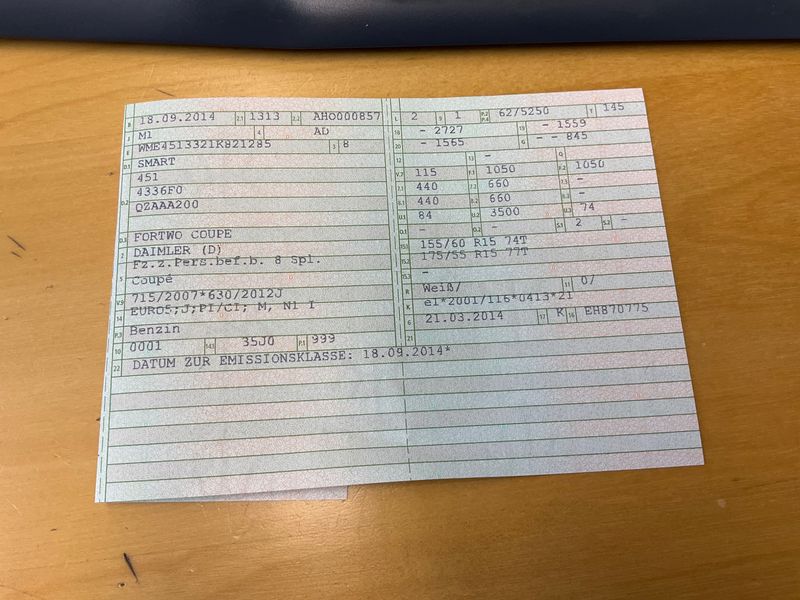 B 18.09.2014 2.1 1313 2.2 AHO000857
J M1 4 AD
E WME4513321K821285 3 8
D.1 SMART
451
D.2 4336F0
QZAAA200
D.3 FORTWO COUPE
2 DAIMLER (D)
Fz.z.Pers.bef.b. 8 Spl.
5 Coupé
V.9 715/2007*630/2012J
14 EURO5;J;PI/CI; M, N1 I
P.3 Benzin
10 0001 14.1 35J0 P.1 999
22 DATUM ZUR EMISSIONSKLASSE: 18.09.2014*
L 2 9 1 P.2 P.4 62/5250 T 145
18 - 2727 19 - 1559
20 - 1565 G - - 845
12 - 13 - Q
V.7 115 F.1 1050 F.2 1050
7.1 440 7.2 660 7.3 -
8.1 440 8.2 660 8.3 -
U.1 84 U.2 3500 U.3 74
O.1 - O.2 - S.1 2 S.2 -
15.1 155/60 R15 74T
15.2 175/55 R15 77T
15.3 -
R Weiß/ 11 0/
K e1*2001/116*0413*21
6 21.03.2014 17 K 16 EH870775
21